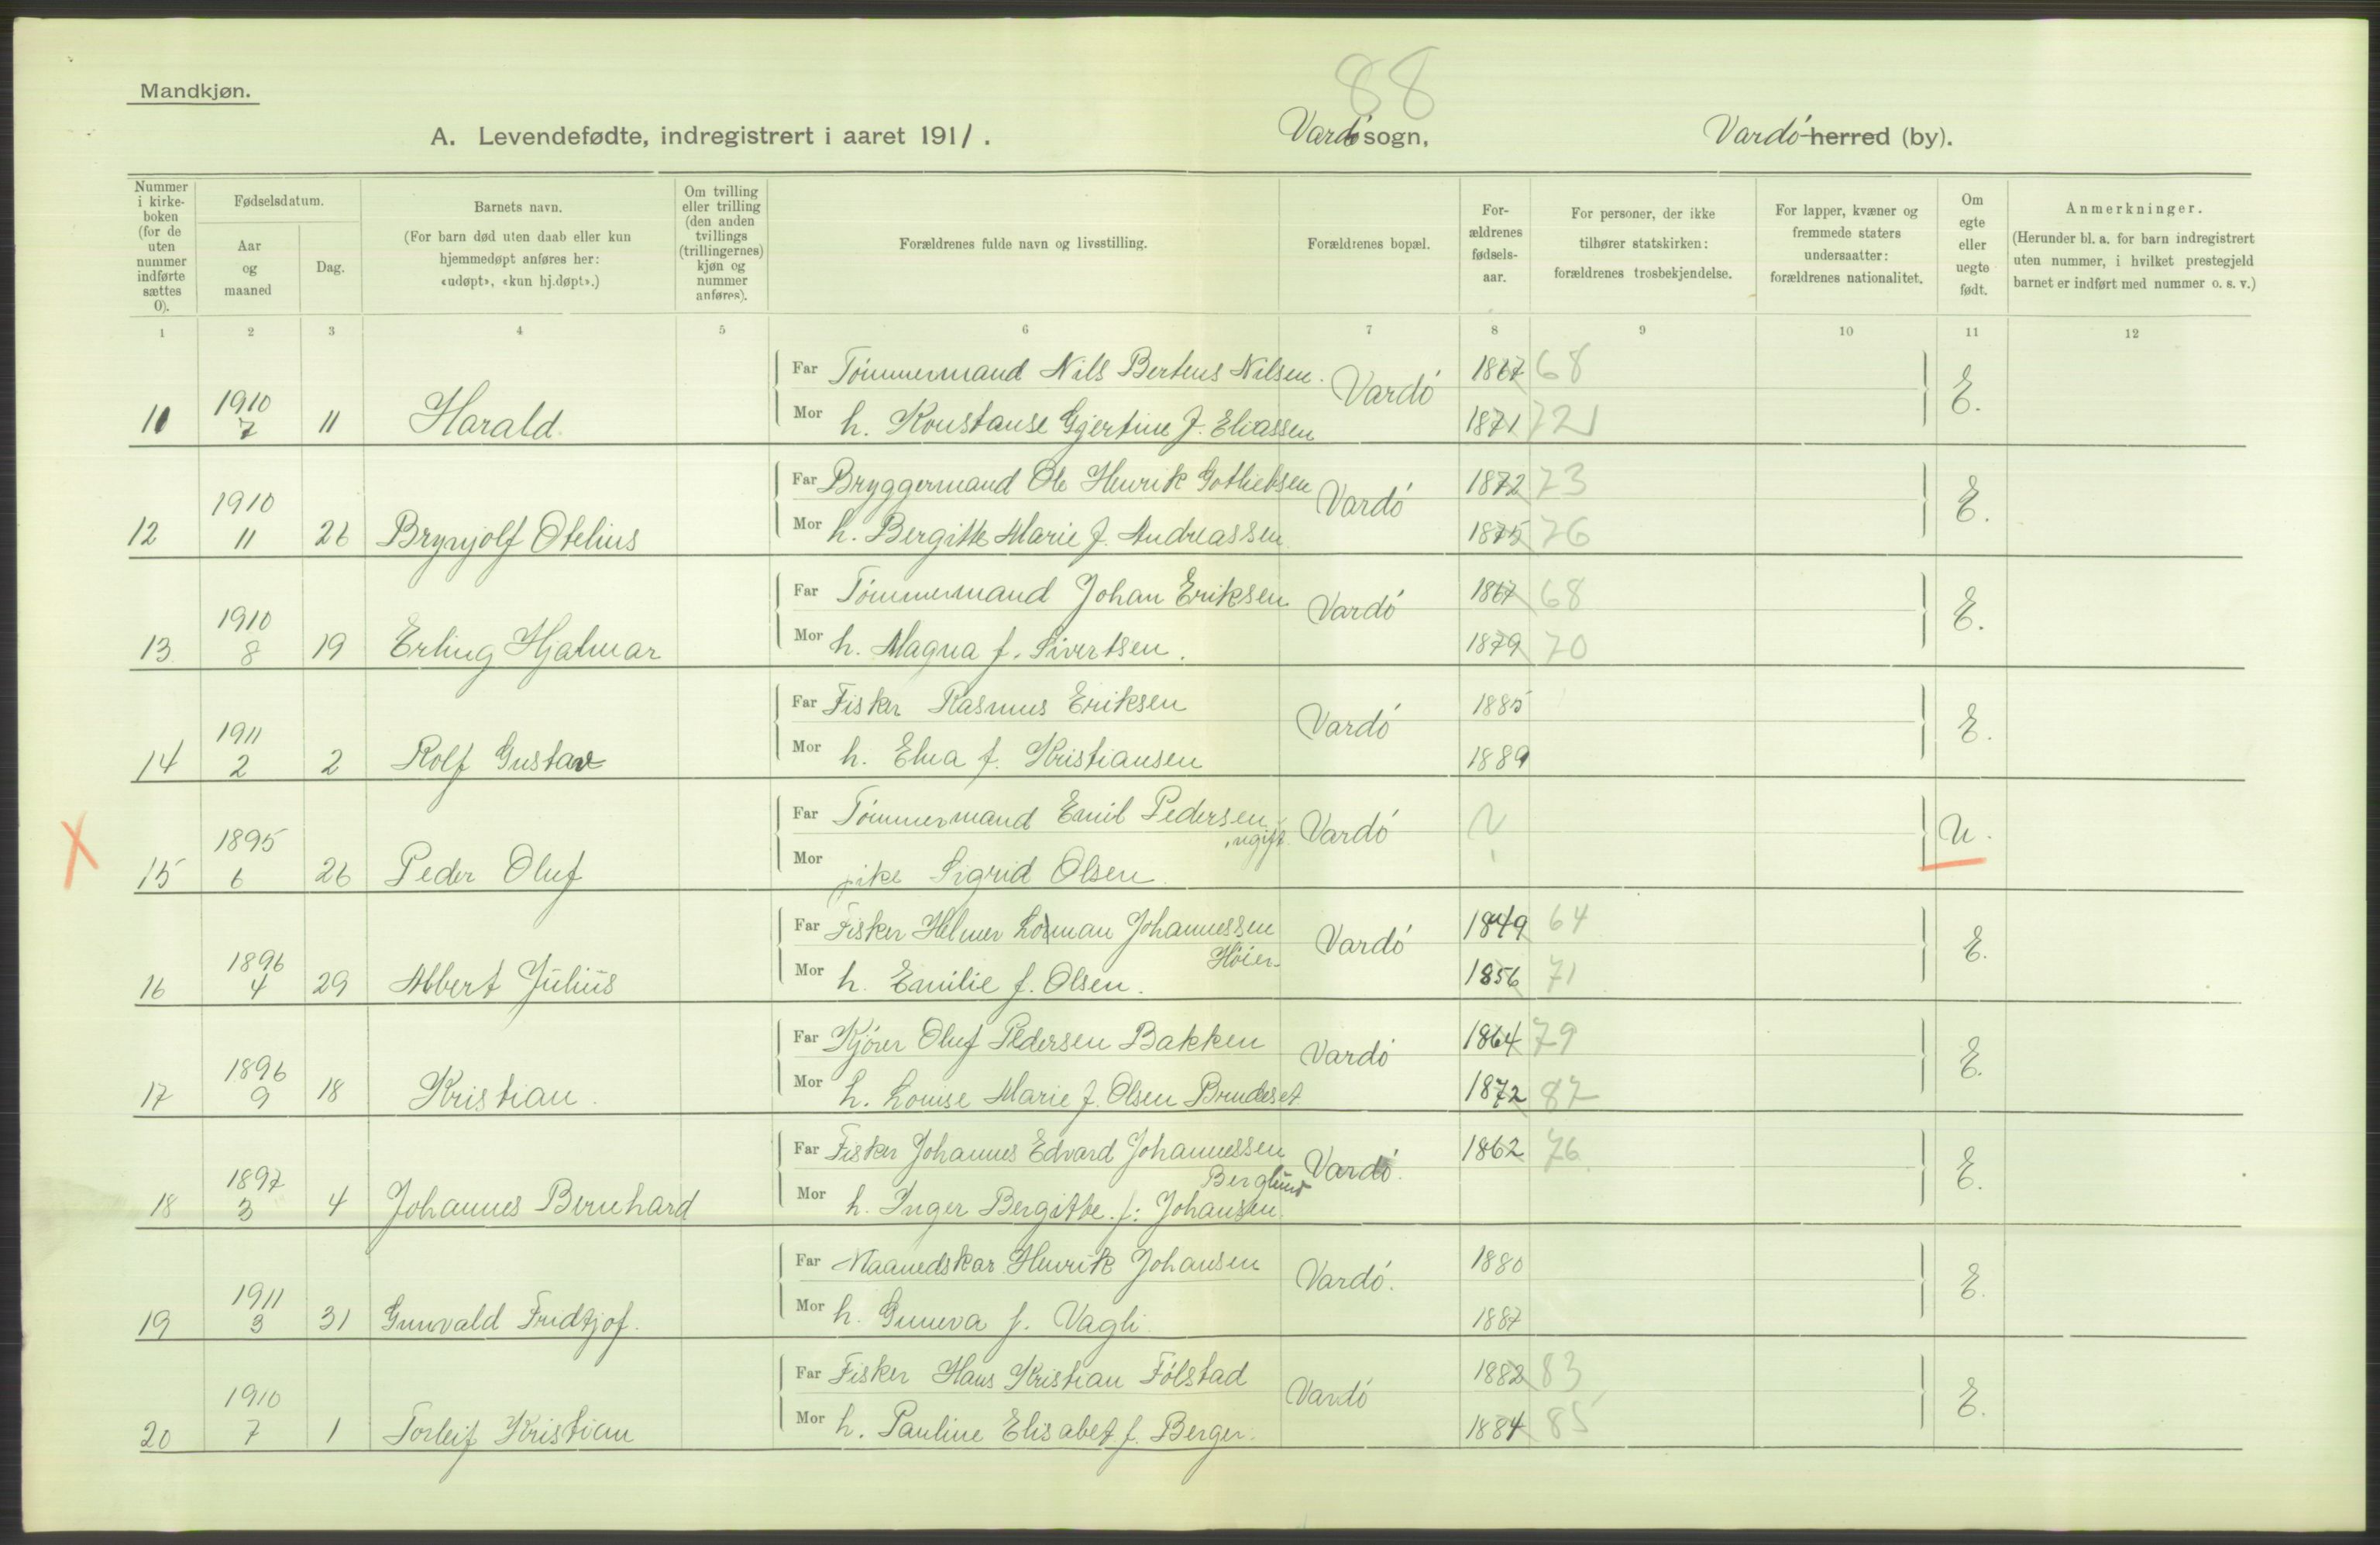 88
Mandkjøn.
A. Levendefødte, indregistrert i aaret 1911. Vardø sogn, Vardø herred (by).
Nummer i kirke-boken (for de uten nummer indførte sættes 0).
Fødselsdatum.
Aar og maaned
Dag.
Barnets navn.
(For barn død uten daab eller kun hjemmedøpt anføres her: «udøpt», «kun hj.døpt».)
Om tvilling eller trilling (den anden tvillings (trillingernes) kjøn og nummer anføres).
Forældrenes fulde navn og livsstilling.
Forældrenes bopæl.
For-ældrenes fødsels-aar.
For personer, der ikke tilhører statskirken: forældrenes trosbekjendelse.
For lapper, kvæner og fremmede staters undersaatter: forældrenes nationalitet.
Om egte eller uegte født.
Anmerkninger.
(Herunder bl. a. for barn indregistrert uten nummer, i hvilket prestegjeld barnet er indført med nummer o. s. v.)
1 2 3 4 5 6 7 8 9 10 11 12
Far Tømmermand Nils Berteus Nilsen. Vardø 1867 68
11 1910 7 11 Harald. Mor h. Konstanse Gjertine f. Eliassen 1871 72 E.
Far Bryggermand Ole Henrik Gotliebsen Vardø 1872 73
12 1910 11 26 Brynjolf Otelius Mor h. Bergitte Marie f. Andreassen 1875 76 E.
Far Tømmermand Johan Eriksen Vardø 1867 68
13 1910 8 19 Erling Hjalmar Mor h. Magna f. Sivertsen. 1879 70 E.
Far Fisker Rasmus Eriksen Vardø 1885
14 1911 2 2 Rolf Gustav Mor h. Elna f. Kristiansen 1889 E.
Far Tømmermand Emil Pedersen, ugift. Vardø ?
X 15 1895 6 26 Peder Oluf Mor pike Sigrid Olsen. U.
Far Fisker Helmer Johannessen Høier Vardø 1849 64
16 1896 4 29 Albert Julius Mor h. Emilie f. Olsen. 1856 71 E.
Far Kjører Oluf Pedersen Bakken Vardø 1864 79
17 1896 9 18 Kristian. Mor h. Louise Marie f. Olsen Brudeset 1872 87 E.
Far Fisker Johannes Edvard Johannessen Berglund Vardø. 1862 76
18 1897 3 4 Johannes Bernhard Mor h. Inger Bergitte f: Johansen. E.
Far Maanedskar Henrik Johansen Vardø. 1880
19 1911 3 31 Gunvald Fridtjof. Mor h. Guneva f. Vagli 1887 E.
Far Fisker Hans Kristian Følstad Vardø 1882 83
20 1910 7 1 Torleif Kristian Mor h. Pauline Elisabet f. Berger. 1884 85 E.